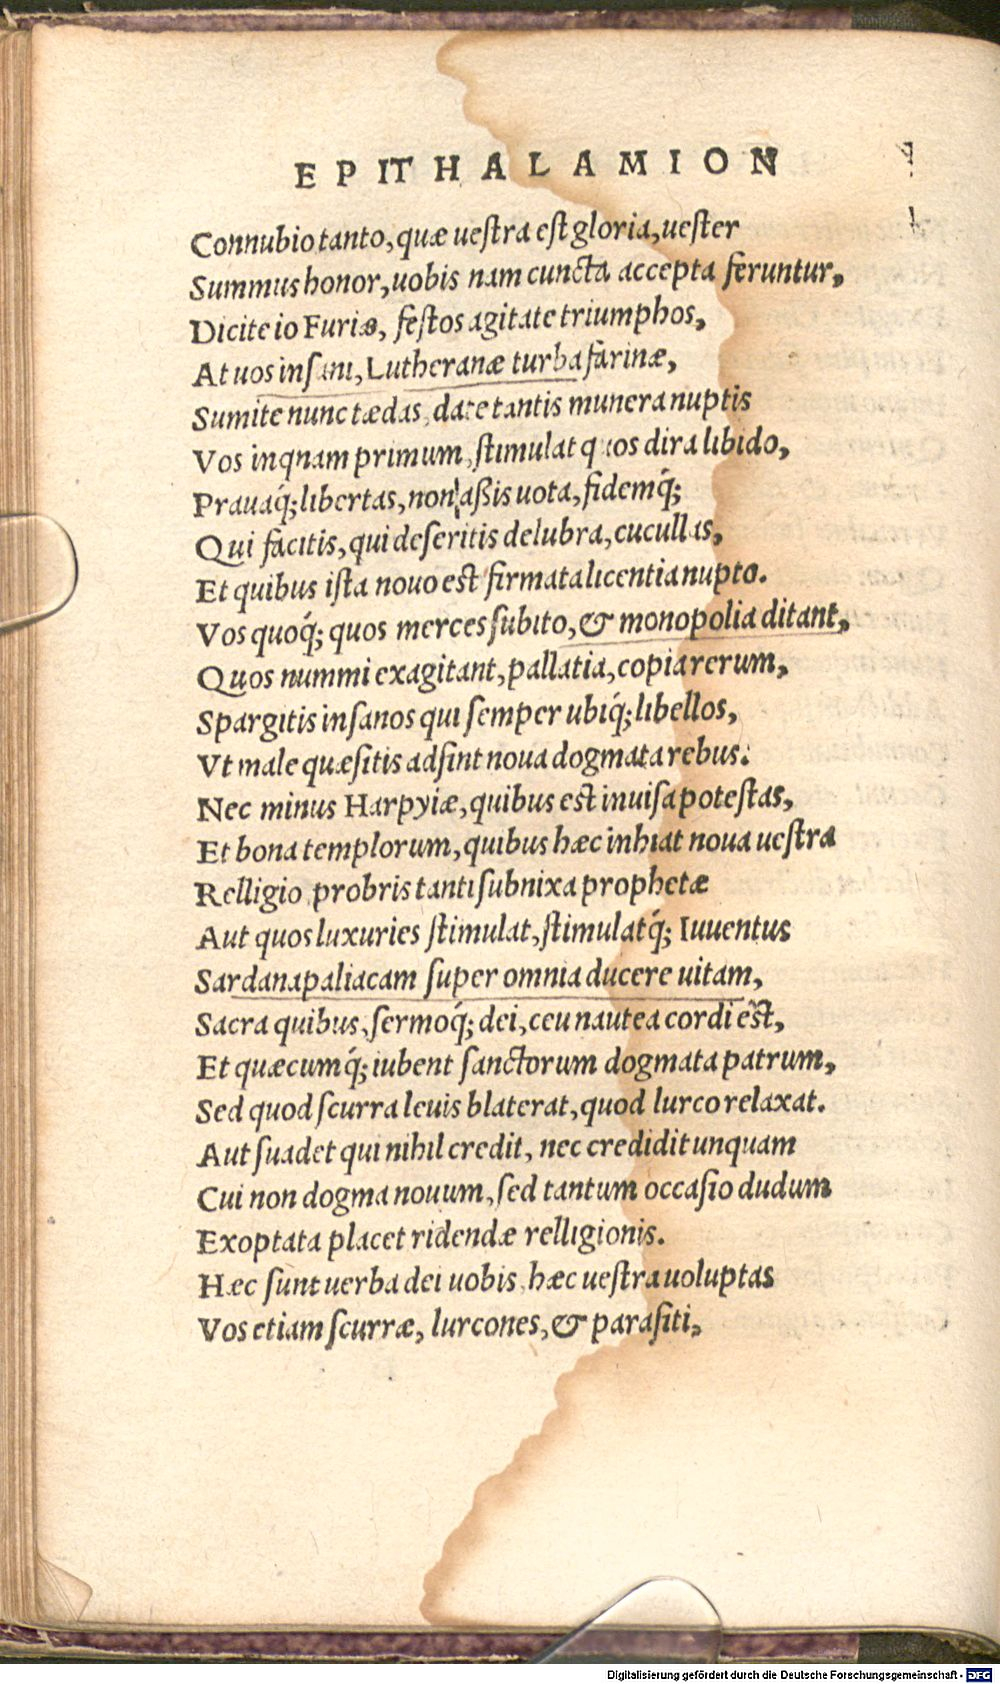 EPITHALAMION
Connubio tanto, quæ uestra est gloria, uester
Summus honor, uobis nam cuncta accepta feruntur,
Dicite io Furiæ, festos agitate triumphos,
At uos insani, Lutheranæ turba farinæ,
Sumite nunc tædas, date tantis munera nuptis
Vos inqnam primum, stimulat quos dira libido,
Prauaq́; libertas, non aßis uota, fidemq́;
Qui facitis, qui deseritis delubra, cucullas,
Et quibus ista nouo est firmata licentia nupto.
Vos quoq́; quos merces subito, & monopolia ditant,
Quos nummi exagitant, pallatia, copia rerum,
Spargitis insanos qui semper ubiq́; libellos,
Vt male quæsitis adsint noua dogmata rebus.
Nec minus Harpyiæ, quibus est inuisa potestas,
Et bona templorum, quibus hæc inhiat noua uestra
Relligio probris tanti subnixa prophetæ
Aut quos luxuries stimulat, stimulatq́; Iuuentus
Sardanapaliacam super omnia ducere uitam,
Sacra quibus, sermoq́; dei, ceu nautea cordi est,
Et quæcumq́; iubent sanctorum dogmata patrum,
Sed quod scurra leuis blaterat, quod lurco relaxat.
Aut suadet qui nihil credit, nec credidit unquam
Cui non dogma nouum, sed tantum occasio dudum
Exoptata placet ridendæ relligionis.
Hæc sunt uerba dei uobis, hæc uestra uoluptas
Vos etiam scurræ, lurcones, & parasiti,
Digitalisierung gefördert durch die Deutsche Forschungsgemeinschaft - DFG